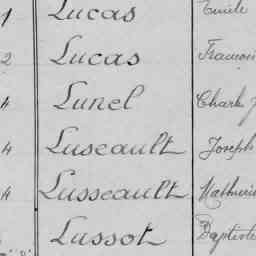 1 Lucas Emile
2 Lucas
4 Lunel Charles
4 Luseault Joseph
4 Lusseault Mathurin
Lussot Baptiste